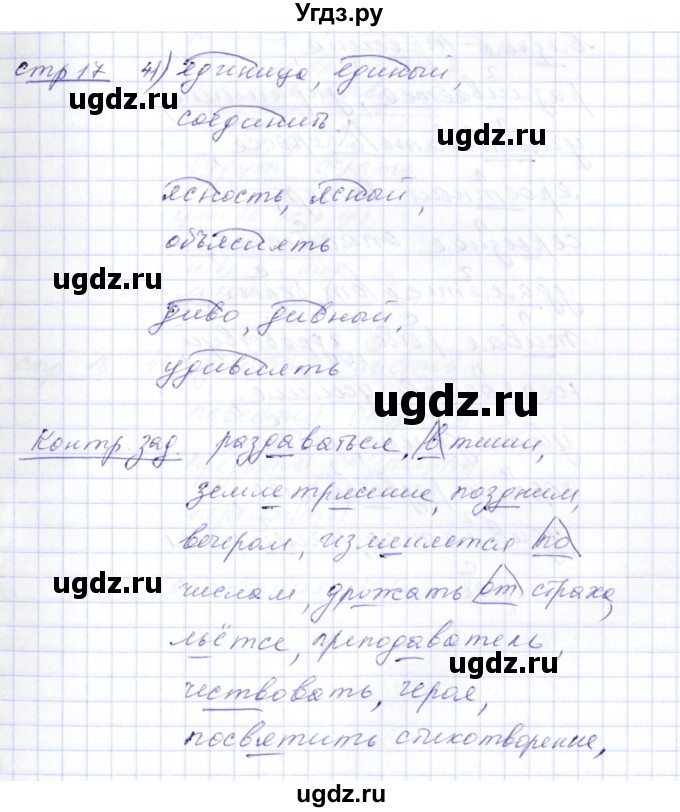 Угдз.ру
стр 17 41) единица, единый,
соединить
ясность, ясный,
объяснять
диво, дивный,
удивлять
Контр. зад. раздаваться, в тиши,
землетрясение, поздним,
вечером, изменяется по
числам, дрожать от страха,
льётся, преподаватель,
чествовать, героя,
посвятить стихотворение,
ugdz.ru
ugdz.ru
ugdz.ru
ugdz.ru
ugdz.ru
ugdz.ru
ugdz.ru
ugdz.ru
ugdz.ru